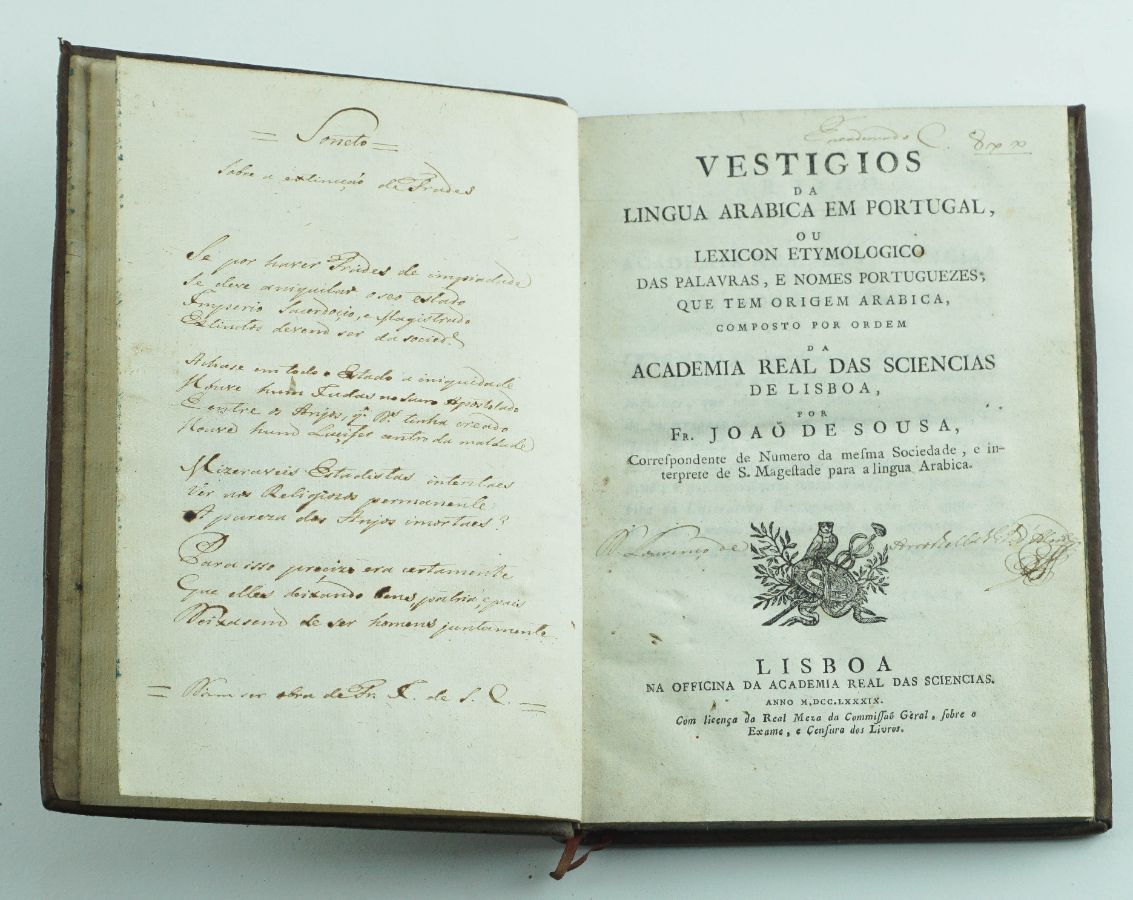 = Soneto =
Sobre a extincçaõ de Frades
Se por haver Frades de impiedade
Se deve aniquilar o seo estado
Imperio Sacerdocio, e Magistrado
Extinctos devend ser da socied.e
Achase em todo o Estado a iniquidade
Houve hum Judas no Apostolado
Entre os Anjos, q. tenha creado
Houve hum Lucifer centro da maldade
Mizeraveis Estadistas intentaes
Ver nos Religiosos permanente
A pureza dos Anjos imortaes?
Para isso precizo era certamente
Que elles deixando
Deixasend de ser homens juntamente.
= obra de Fr. J. de S. C. =
Encadernado C. 8
VESTIGIOS
DA
LINGUA ARABICA EM PORTUGAL,
OU
LEXICON ETYMOLOGICO
DAS PALAVRAS, E NOMES PORTUGUEZES,
QUE TEM ORIGEM ARABICA,
COMPOSTO POR ORDEM
DA
ACADEMIA REAL DAS SCIENCIAS
DE LISBOA,
POR
FR. JOAÕ DE SOUSA,
Correſpondente de Numero da meſma Sociedade, e in-
terprete de S. Mageſtade para a lingua Arabica.
Lourenço de
LISBOA
NA OFFICINA DA ACADEMIA REAL DAS SCIENCIAS.
ANNO M,DCC.LXXXIX.
Com licença da Real Meza da Commiſſaõ Geral, ſobre o
Exame, e Cenſura dos Livros.